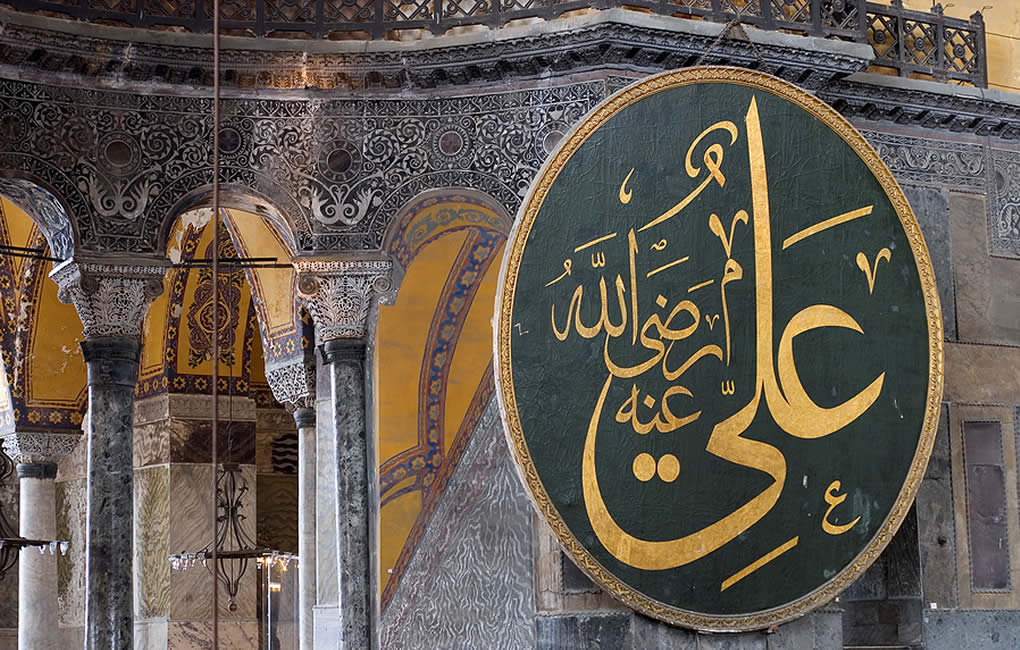 عَلِيّ
رضي الله
عنه